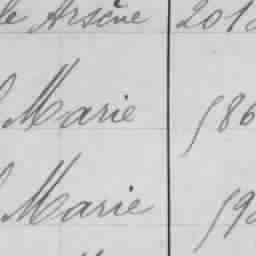 le Arsène 201
Marie 586
Marie 59